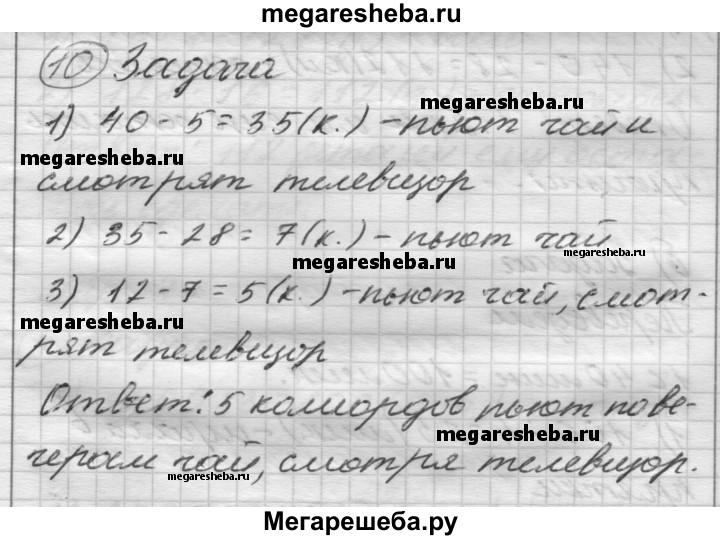 megaresheba.ru
10 Задача
1) 40 - 5 = 35 (к.) - пьют чай и
megaresheba.ru
megaresheba.ru
смотрят телевизор
2) 35 - 28 = 7 (к.) - пьют чай
megaresheba.ru
megaresheba.ru
3) 12 - 7 = 5 (к.) - пьют чай, смот-
megaresheba.ru
рят телевизор
Ответ: 5 колиордов пьют по ве-
megaresheba.ru
черам чай, смотря телевизор.
megaresheba.ru
Мегарешеба.ру